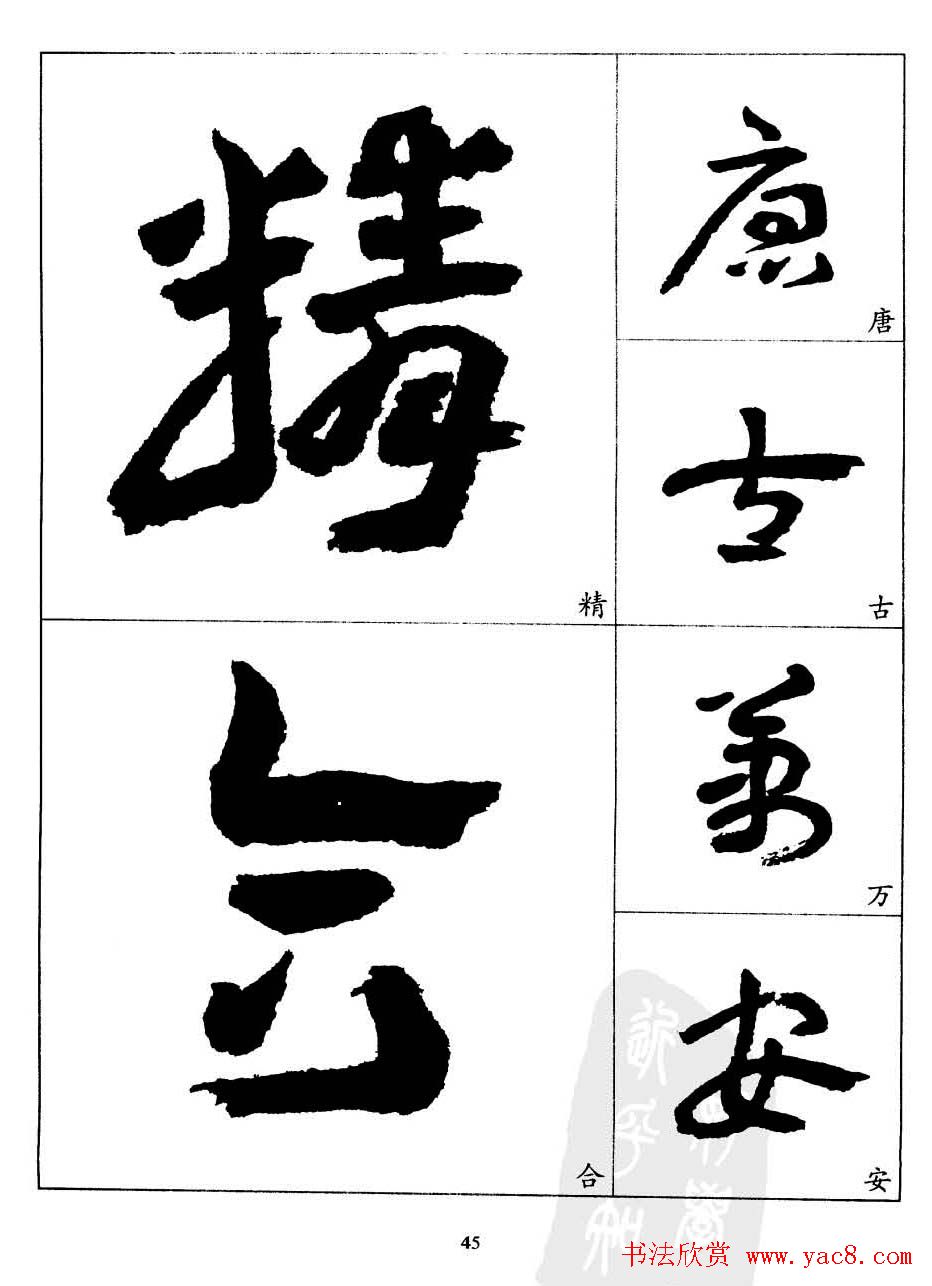 精
合
唐
古
万
安
45
书法欣赏 www.yac8.com